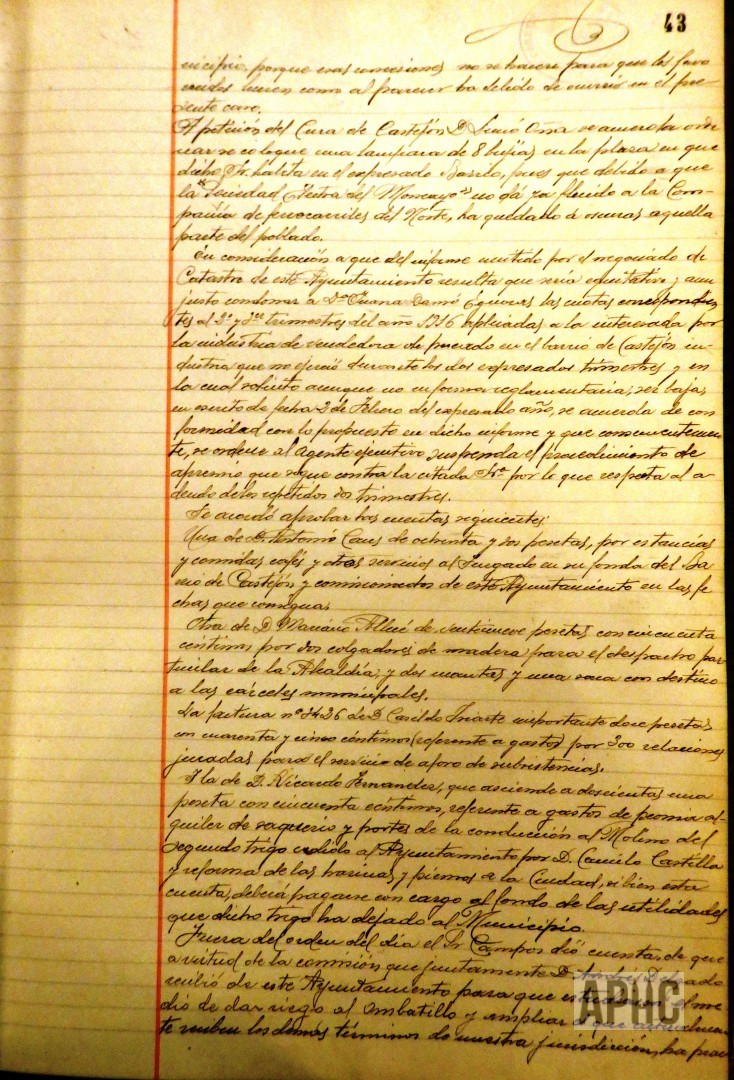 43
nicipio, porque esas concesiones no se hacen para que los favo
recidos lucren como al parecer ha debido de ocurrir en el pre-
sente caso.
A petición del Cura de Castejón D. Lucio Oña se acuerda orde
nar se coloque una lampara de 8 bujías en la plaza en que
dicho Sr. habita en el expresado Barrio, pues que debido a que
la "Sociedad Electra del Moncayo" no dá ya fluido a la Com-
pañia de ferrocarriles del Norte, ha quedado á oscuras aquella
parte del poblado.
En consideración a que del informe emitido por el negociado de
Catastro de este Ayuntamiento resulta que sería equitativo y aun
justo condonar a Dª Juana las cuotas correspondien
tes al 2º y 3er trimestres del año 1916 aplicadas a la interesada por
la industria de vendedora de pescado en el barrio de Castejón in-
dustria que no ejerció durante los dos expresados trimestres y en
la cual solicito aunque no en forma reglamentaria, ser baja,
en escrito de fecha 2 de Febrero del expresado año, se acuerda de con
formidad con lo propuesto en dicho informe y que consecuentemen-
te, se ordene al Agente ejecutivo suspenda el procedimiento de
apremio que sigue contra la citada Srª por lo que respecta al a-
deudo de los repetidos dos trimestres.
Se acordó aprobar las cuentas siguientes:
Una de D. Antonio de ochenta y dos pesetas, por estancias
y comidas cafés y otros servicios al Juzgado en su fonda del Ba-
rrio de Castejón y comisionados de este Ayuntamiento en las fe
chas que consigna.
Otra de D. Mariano Allué de veintinueve pesetas con cincuenta
céntimos por dos colgadores de madera para el despacho par-
ticular de la Alcaldía, y dos mantas y una saca con destino
a las cárceles municipales.
La factura nº 3426 de D. Casildo Iriarte importante doce pesetas
con cuarenta y cinco céntimos (referente a gastos) por 300 relaciones
juradas para el servicio de aforo de subsistencias.
Y la de D. Ricardo Fernandez, que asciende a doscientas una
peseta con cincuenta céntimos, referente a gastos de peonia al-
quiler de saquerio y portes de la conducción al Molino del
segundo trigo cedido al Ayuntamiento por D. Camilo Castilla
y reforma de las harinas y piensos a la Ciudad, si bien esta
cuenta, deberá pagarse con cargo al fondo de las utilidades
que dicho trigo ha dejado al Municipio.
Fuera del orden del día el Sr. Campos dió cuenta, de que
a virtud de la comisión que juntamente D.
recibió de este Ayuntamiento para que estudiasen el me
dio de dar riego al Ambatillo y ampliar el que actualmen
te reciben los demas términos de nuestra jurisdicción, ha
APHC